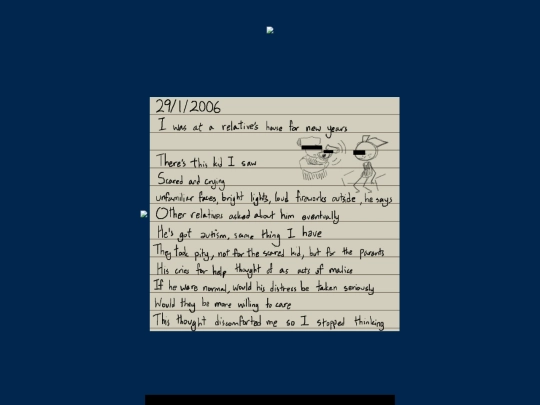 29/1/2006
I was at a relative's house for new years
There's this kid I saw
Scared and crying
unfamiliar faces, bright lights, loud fireworks outside, he says
Other relatives asked about him eventually
He's got autism, same thing I have
They took pity, not for the scared kid, but for the parents
His cries for help thought of as acts of malice
If he were normal, would his distress be taken seriously
Would they be more willing to care
This thought discomforted me so I stopped thinking